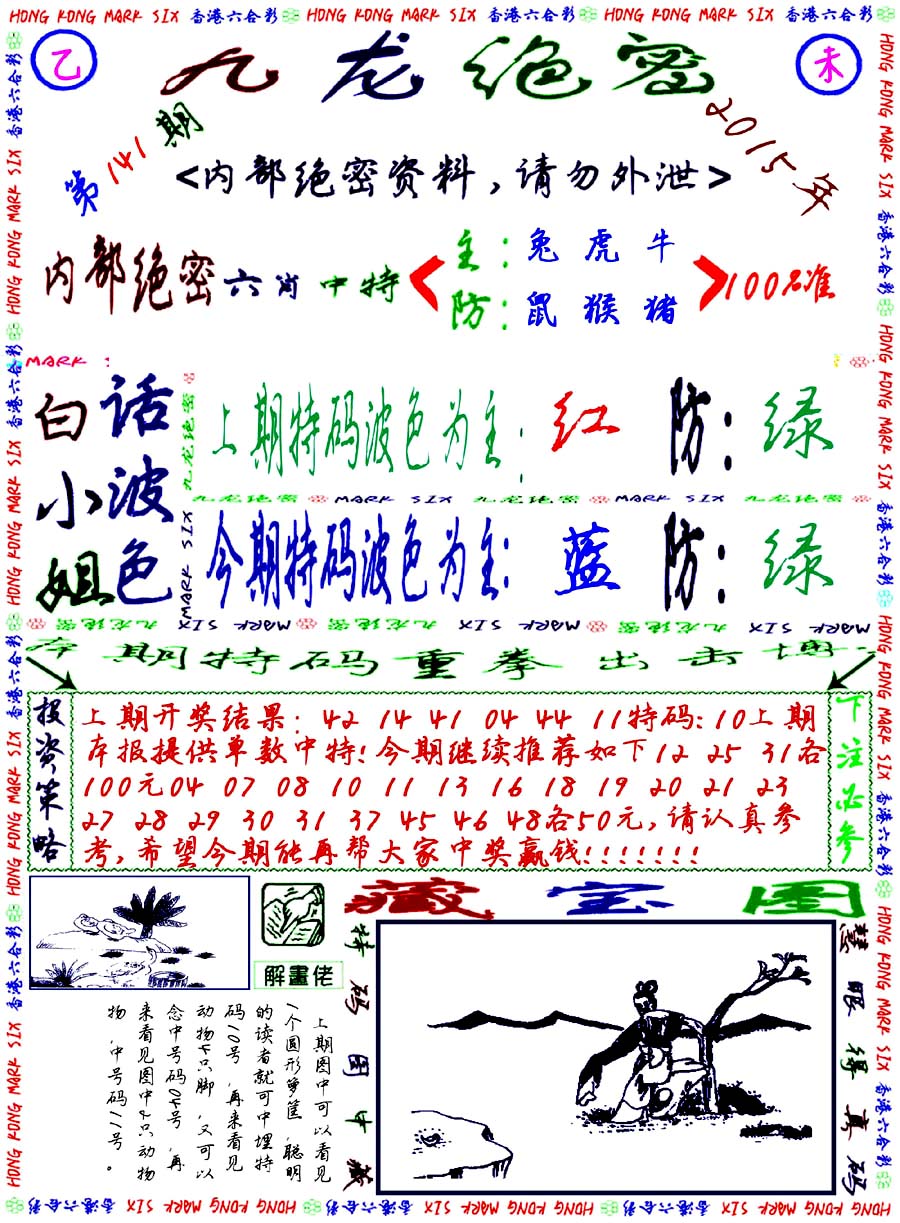 HONG KONG MARK SIX 香港六合彩 HONG KONG MARK SIX 香港六合彩 HONG KONG MARK SIX 香港六合彩
乙 九龙绝密 未
第141期
2015年
<内部绝密资料,请勿外泄>
内部绝密六肖中特
主:兔虎牛
防:鼠猴猪
100%准
MARK
白小姐
话波色
九龙绝密
MARK SIX
上期特码波色为主:红 防:绿
九龙绝密 MARK SIX 九龙绝密 MARK SIX 九龙绝密
今期特码波色为主:蓝 防:绿
九龙绝密 MARK SIX 九龙绝密 MARK SIX 九龙绝密 MARK SIX
本期特码重拳出击博
投资策略
上期开奖结果: 42 14 41 04 44 11特码:10上期
本报提供单数中特!今期继续推荐如下12 25 31各
100元04 07 08 10 11 13 16 18 19 20 21 23
27 28 29 30 31 37 45 46 48各50元,请认真参
考,希望今期能再帮大家中奖赢钱!!!!!!!
下注必参
解畫佬
藏宝图
特码图中藏
慧眼得真码
上期图中可以看见
1个圆形箩筐,聪明
的读者就可中埋特
码10号,再来看见
动物4只脚,又可以
念中号码04号,再
来看见图中2只动物
物,中号码11号。
HONG KONG MARK SIX 香港六合彩 HONG KONG MARK SIX 香港六合彩 HONG KONG MARK SIX 香港六合彩